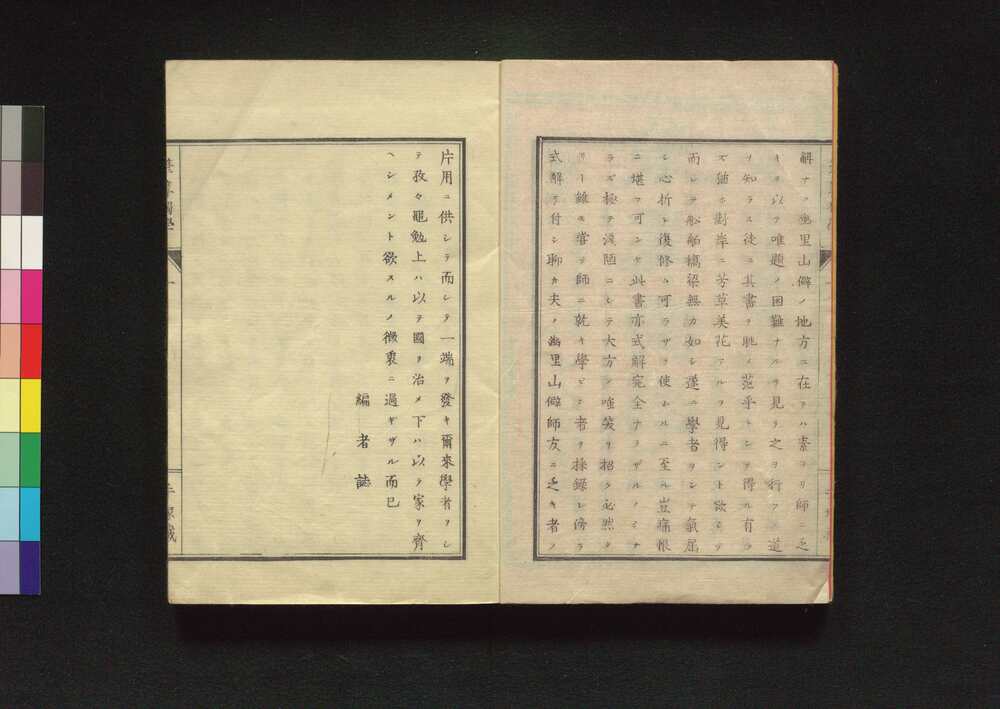 解ナク幽里山僻ノ地方ニ在テハ素ヨリ師ニ乏
キヲ以テ唯題ノ困難ナルヲ見ヲ之ヨ行フノ道
ヲ知ラス徒ニ其書ヲ眺メ茫乎トシテ得ル有ラ
ズ猶ホ対岸ニ芳草美花アルヲ見得ント欲シテ
而シテ舩舶橋梁無カ如シ遂ニ學者ヲシテ氣屈
シ心折レ復修ム可ラザラ使ムルニ至ル豈痛恨
ニ堪フ可ンヤ此書亦式解完全ナラザルノミナ
ラズ極テ浅陋ニシテ大方ノ嗤笑ヲ招ク必然タ
リ一雖モ嘗テ師ニ就キ學ビシ者ヲ採録シ傍ラ
式解ヲ付シ聊カ夫ノ幽里山僻師友ニ乏キ者ノ
片用ニ供シテ而シテ一端ヲ發キ爾来學者ヲシ
テ孜々黽勉上ハ以テ國ヲ治メ下ハ以テ家ヲ齊
ヘシメント欲スルノ微衷ニ過ギザル而已
編者誌